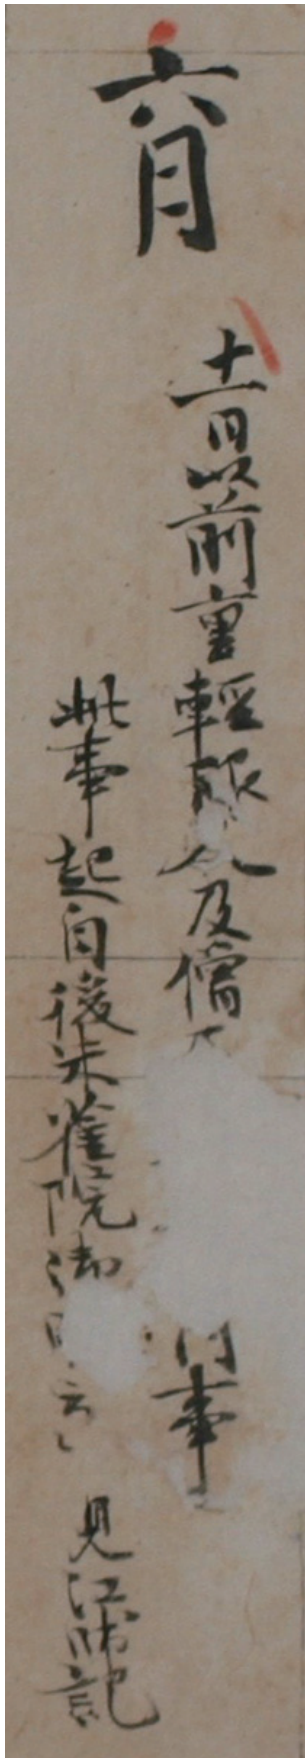 六月
十一日以前重軽服人及僧 門事
此事起自後朱雀院御 云〻 見江帥記